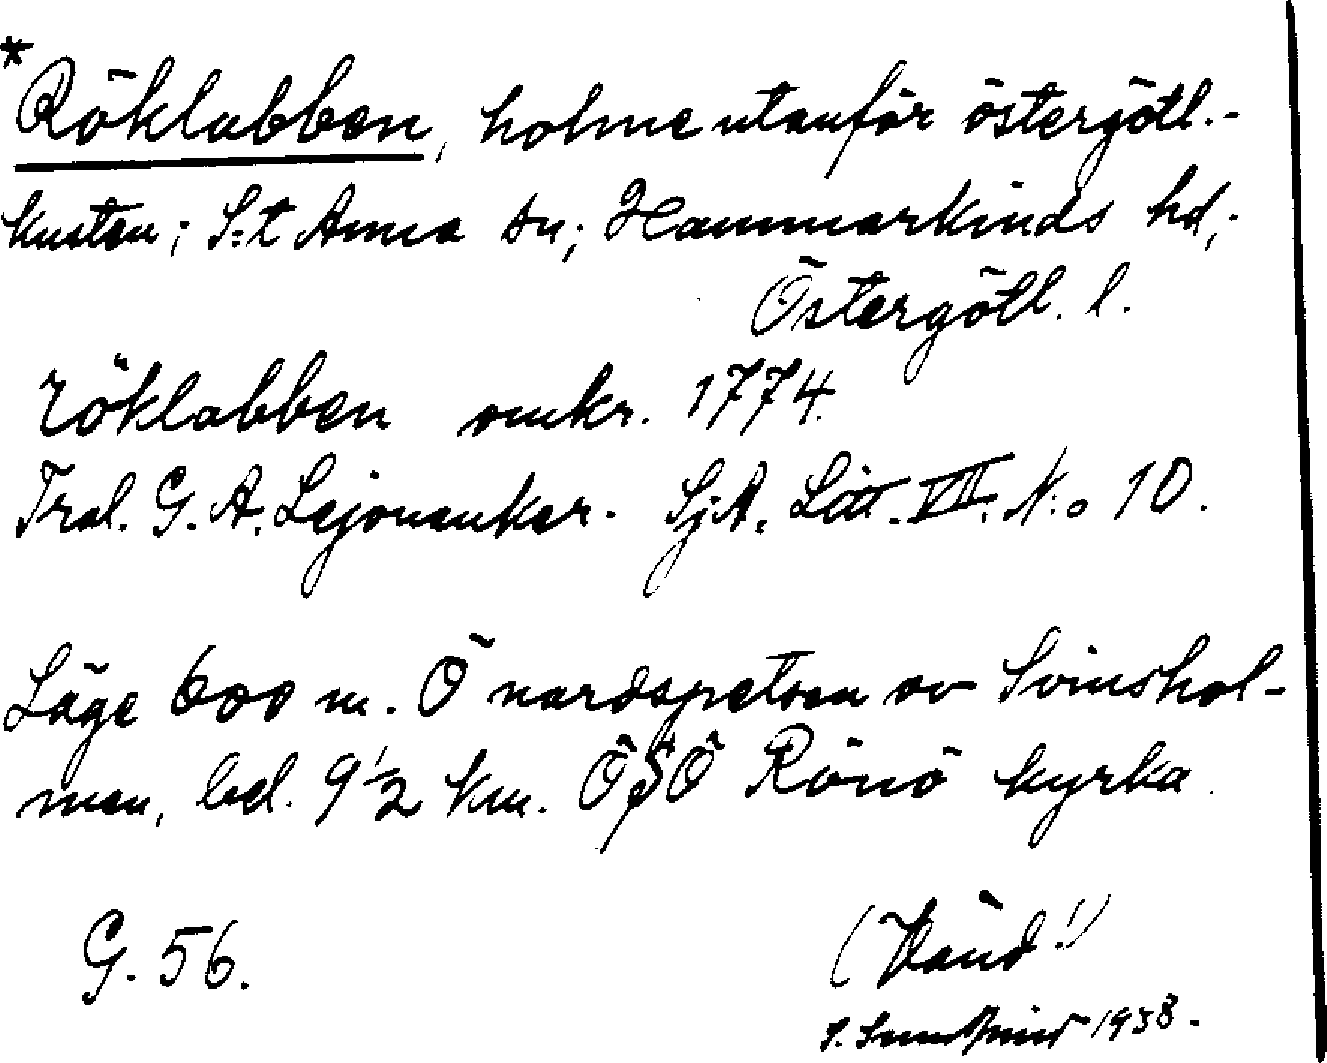 * Röklabben, holme utanför östergötl.-
kusten; S:t Anna sn; Hammarkinds hd,;
Östergötl. l.
röklabben omkr. 1774.
Tral. G. A. Lejonanker. SjA. Litt. VII. N:o 10.
Läge 600 m. Ö nordspetsen av Svinshol-
men, bel. 9 1/2 km. ÖSÖ Rönö kyrka.
G. 56.
(Vänd!)
1938.